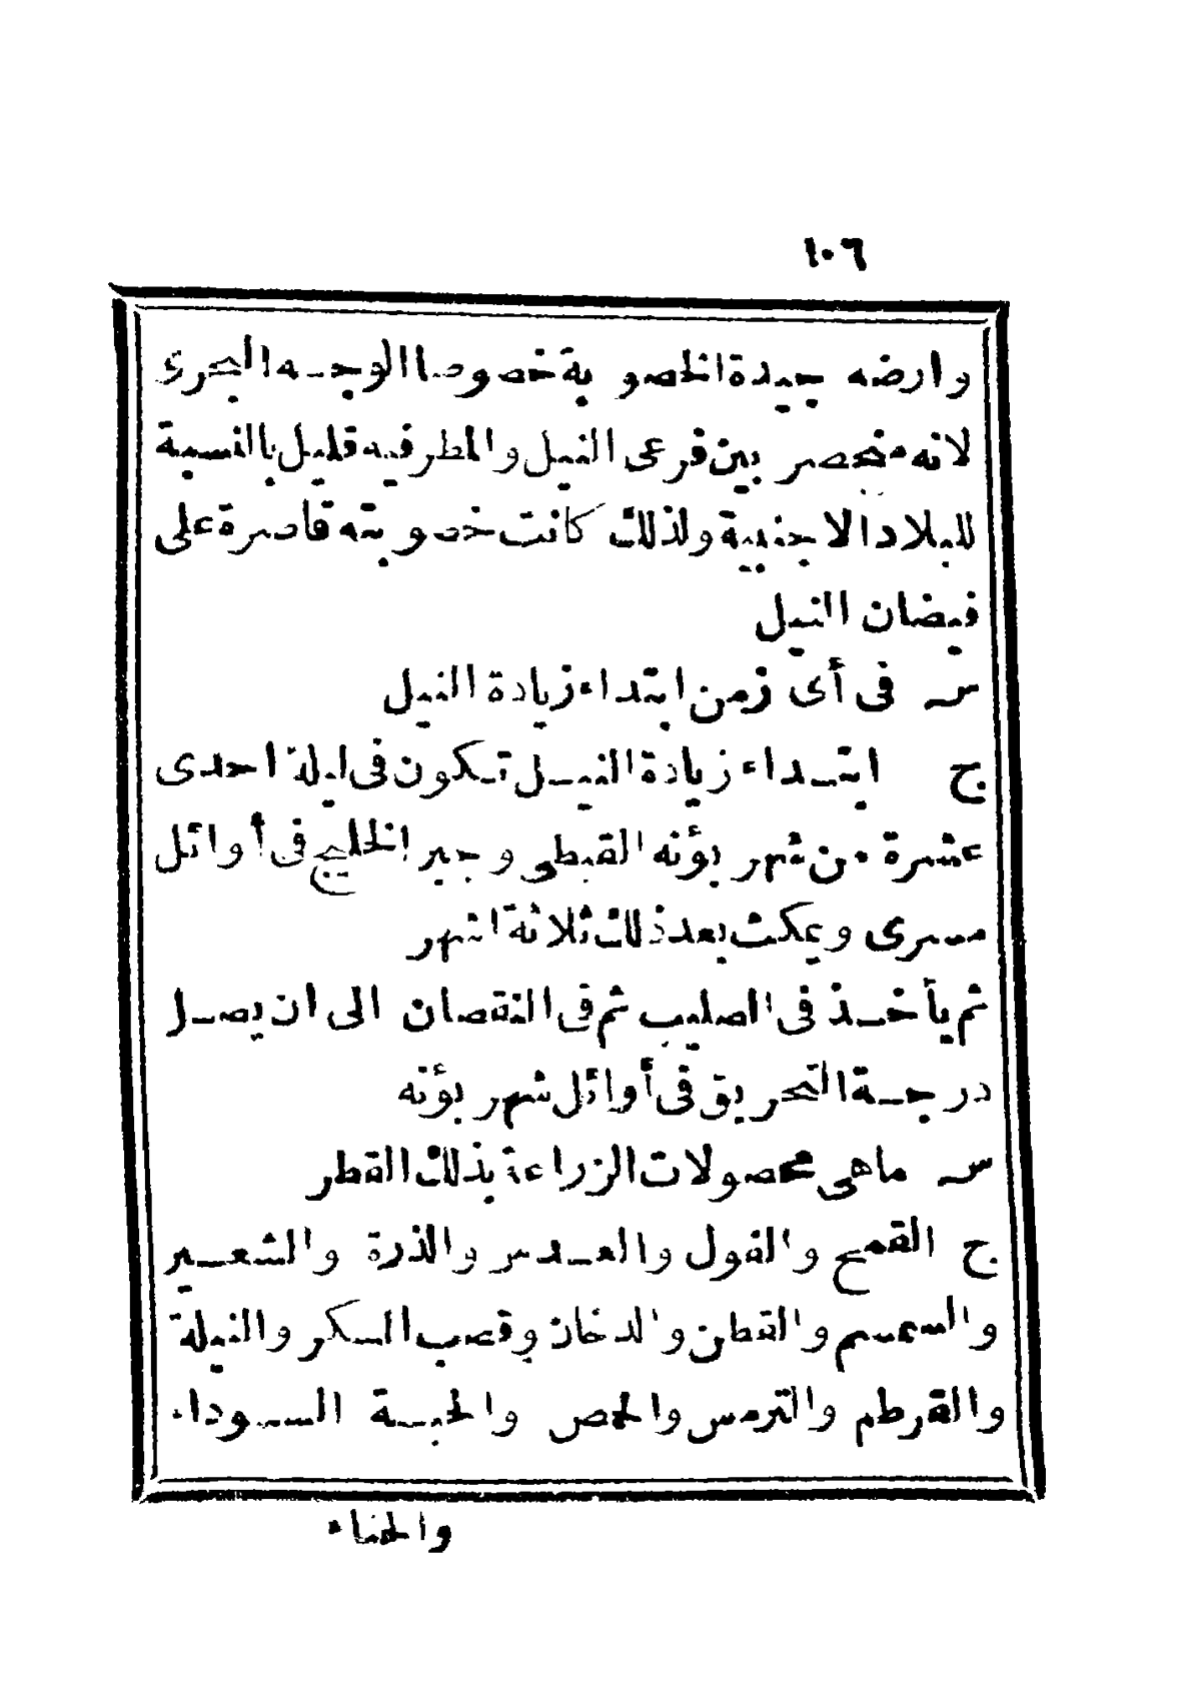 ١٠٦
وارضه جيدة الخصوبة خصوصا الوجه البحرى
لانه منحصر بين فرعى النيل والمطر فيه قليل بالنسبة
للبلاد الاجنبية ولذلك كانت خصوبته قاصرة على
فيضان النيل
س فى أى زمن ابتداء زيادة النيل
ج ابتداء زيادة النيل تكون فى ليلة احدى
عشرة من شهر بؤنه القبطى وجبر الخليج فى أوائل
مسرى ويمكث بعد ذلك ثلاثة اشهر
ثم يأخذ فى الصليب ثم فى النقصان الى ان يصل
درجة التحريق فى أوائل شهر بؤنه
س ماهى محصولات الزراعة بذلك القطر
ج القمح والفول والعدس والذرة والشعير
والسمسم والقطن والدخان وقصب السكر والنيلة
والقرطم والترمس والحمص والحبة السوداء
والحناء